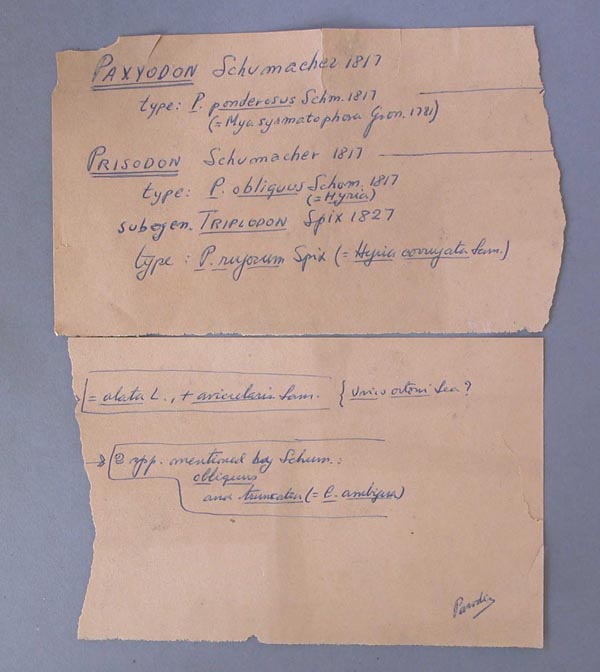 PAXYODON Schumacher 1817
type: P. ponderosus Schm. 1817
(= Mya syrmatophora Gron. 1781)
PRISODON Schumacher 1817
type: P. obliquus Schum. 1817
(= Hyria)
subgen. TRIPLODON Spix 1827
type: P. rugosum Spix (= Hyria corrugata Lam.)
= alata L., + avicularis Lam. { Unio ortoni Lea?
2 spp. mentioned by Schum.:
obliquus
and truncatus (= C. ambigua)
Parodiz